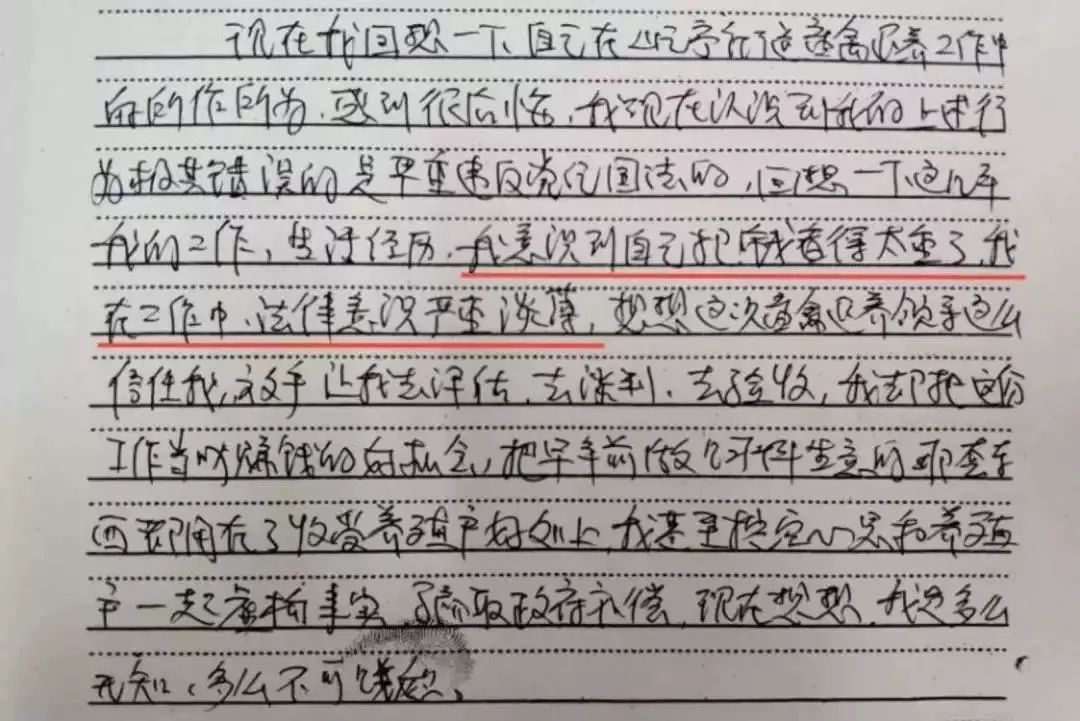 现在我回想一下,自己在从事街道畜禽退养工作中
的所作所为,感到很后悔,我现在认识到我的上述行
为极其错误的是严重违反党纪国法的,回想一下这几年
我的工作,生活经历,我意识到自己把钱看得太重了,我
在工作中,法律意识严重淡薄,想想这次畜禽退养领导这么
信任我,放手让我去评估,去谈判,去验收,我却把这份
工作当成赚钱的好机会,把早年前做饲料生意的那套东
西都用在了收受养殖户好处上,我甚至挖空心思和养殖
户一起虚构事实,骗取政府补偿,现在想想,我是多么
无知,多么不可饶恕。